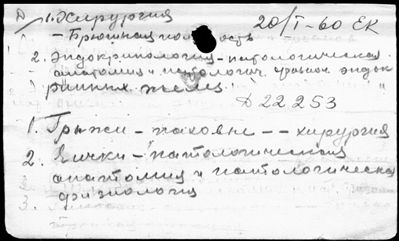 D 1. Хирургия 20/I-60 ЕК
- Брюшная полость
2. Эндокринология - патологическая
анатомия и патологич. физиол. эндок
ринных желез "
D 22253
1. Грыжи - паховые -- хирургия
2. Яички - патологическая
анатомия и патологическая
физиология